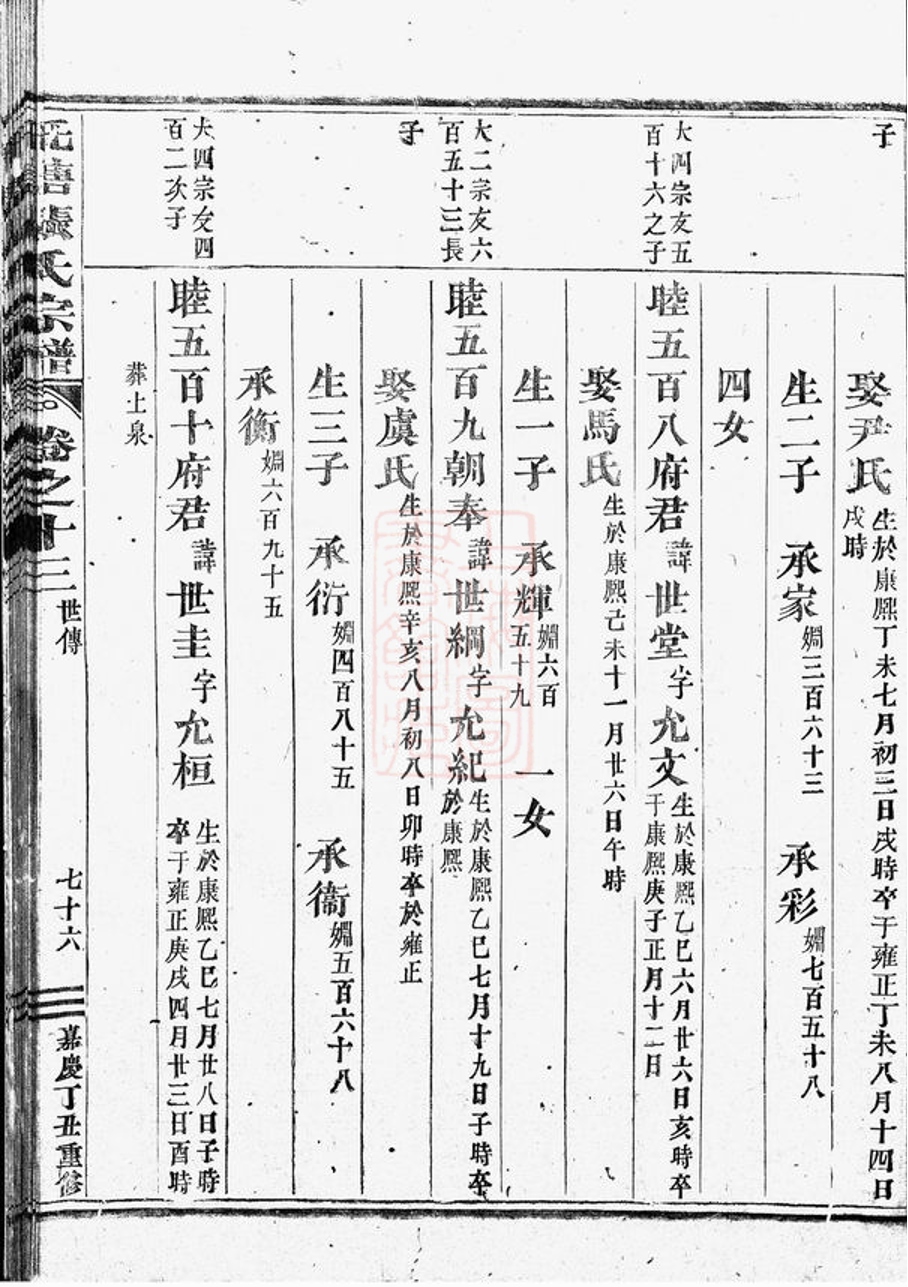 子
娶尹氏 生於康熙丁未七月初三日戌時卒于雍正丁未八月十四日
戌時
生二子 承家 婣三百六十三 承彩 婣七百五十八
四女
大四宗友五
百十六之子
睦五百八府君 諱世堂 字允文 生於康熙乙巳六月廿六日亥時卒
于康熙庚子正月十二日
娶馬氏 生於康熙己未十一月廿六日午時
生一子 承輝 婣六百
五十九 一女
大二宗友六
百五十三長
子
睦五百九朝奉 諱世綱 字允紀 生於康熙乙巳七月十九日子時卒
於康熙
娶虞氏 生於康熙辛亥八月初八日卯時卒於雍正
生三子 承衍 婣四百八十五 承衞 婣五百六十八
承衡 婣六百九十五
大四宗友四
百二次子
睦五百十府君 諱世圭 字允桓 生於康熙乙巳七月廿八日子時
卒于雍正庚戌四月廿三日酉時
葬上泉
張氏宗譜 卷之十三 世傳 七十六 嘉慶丁丑重修